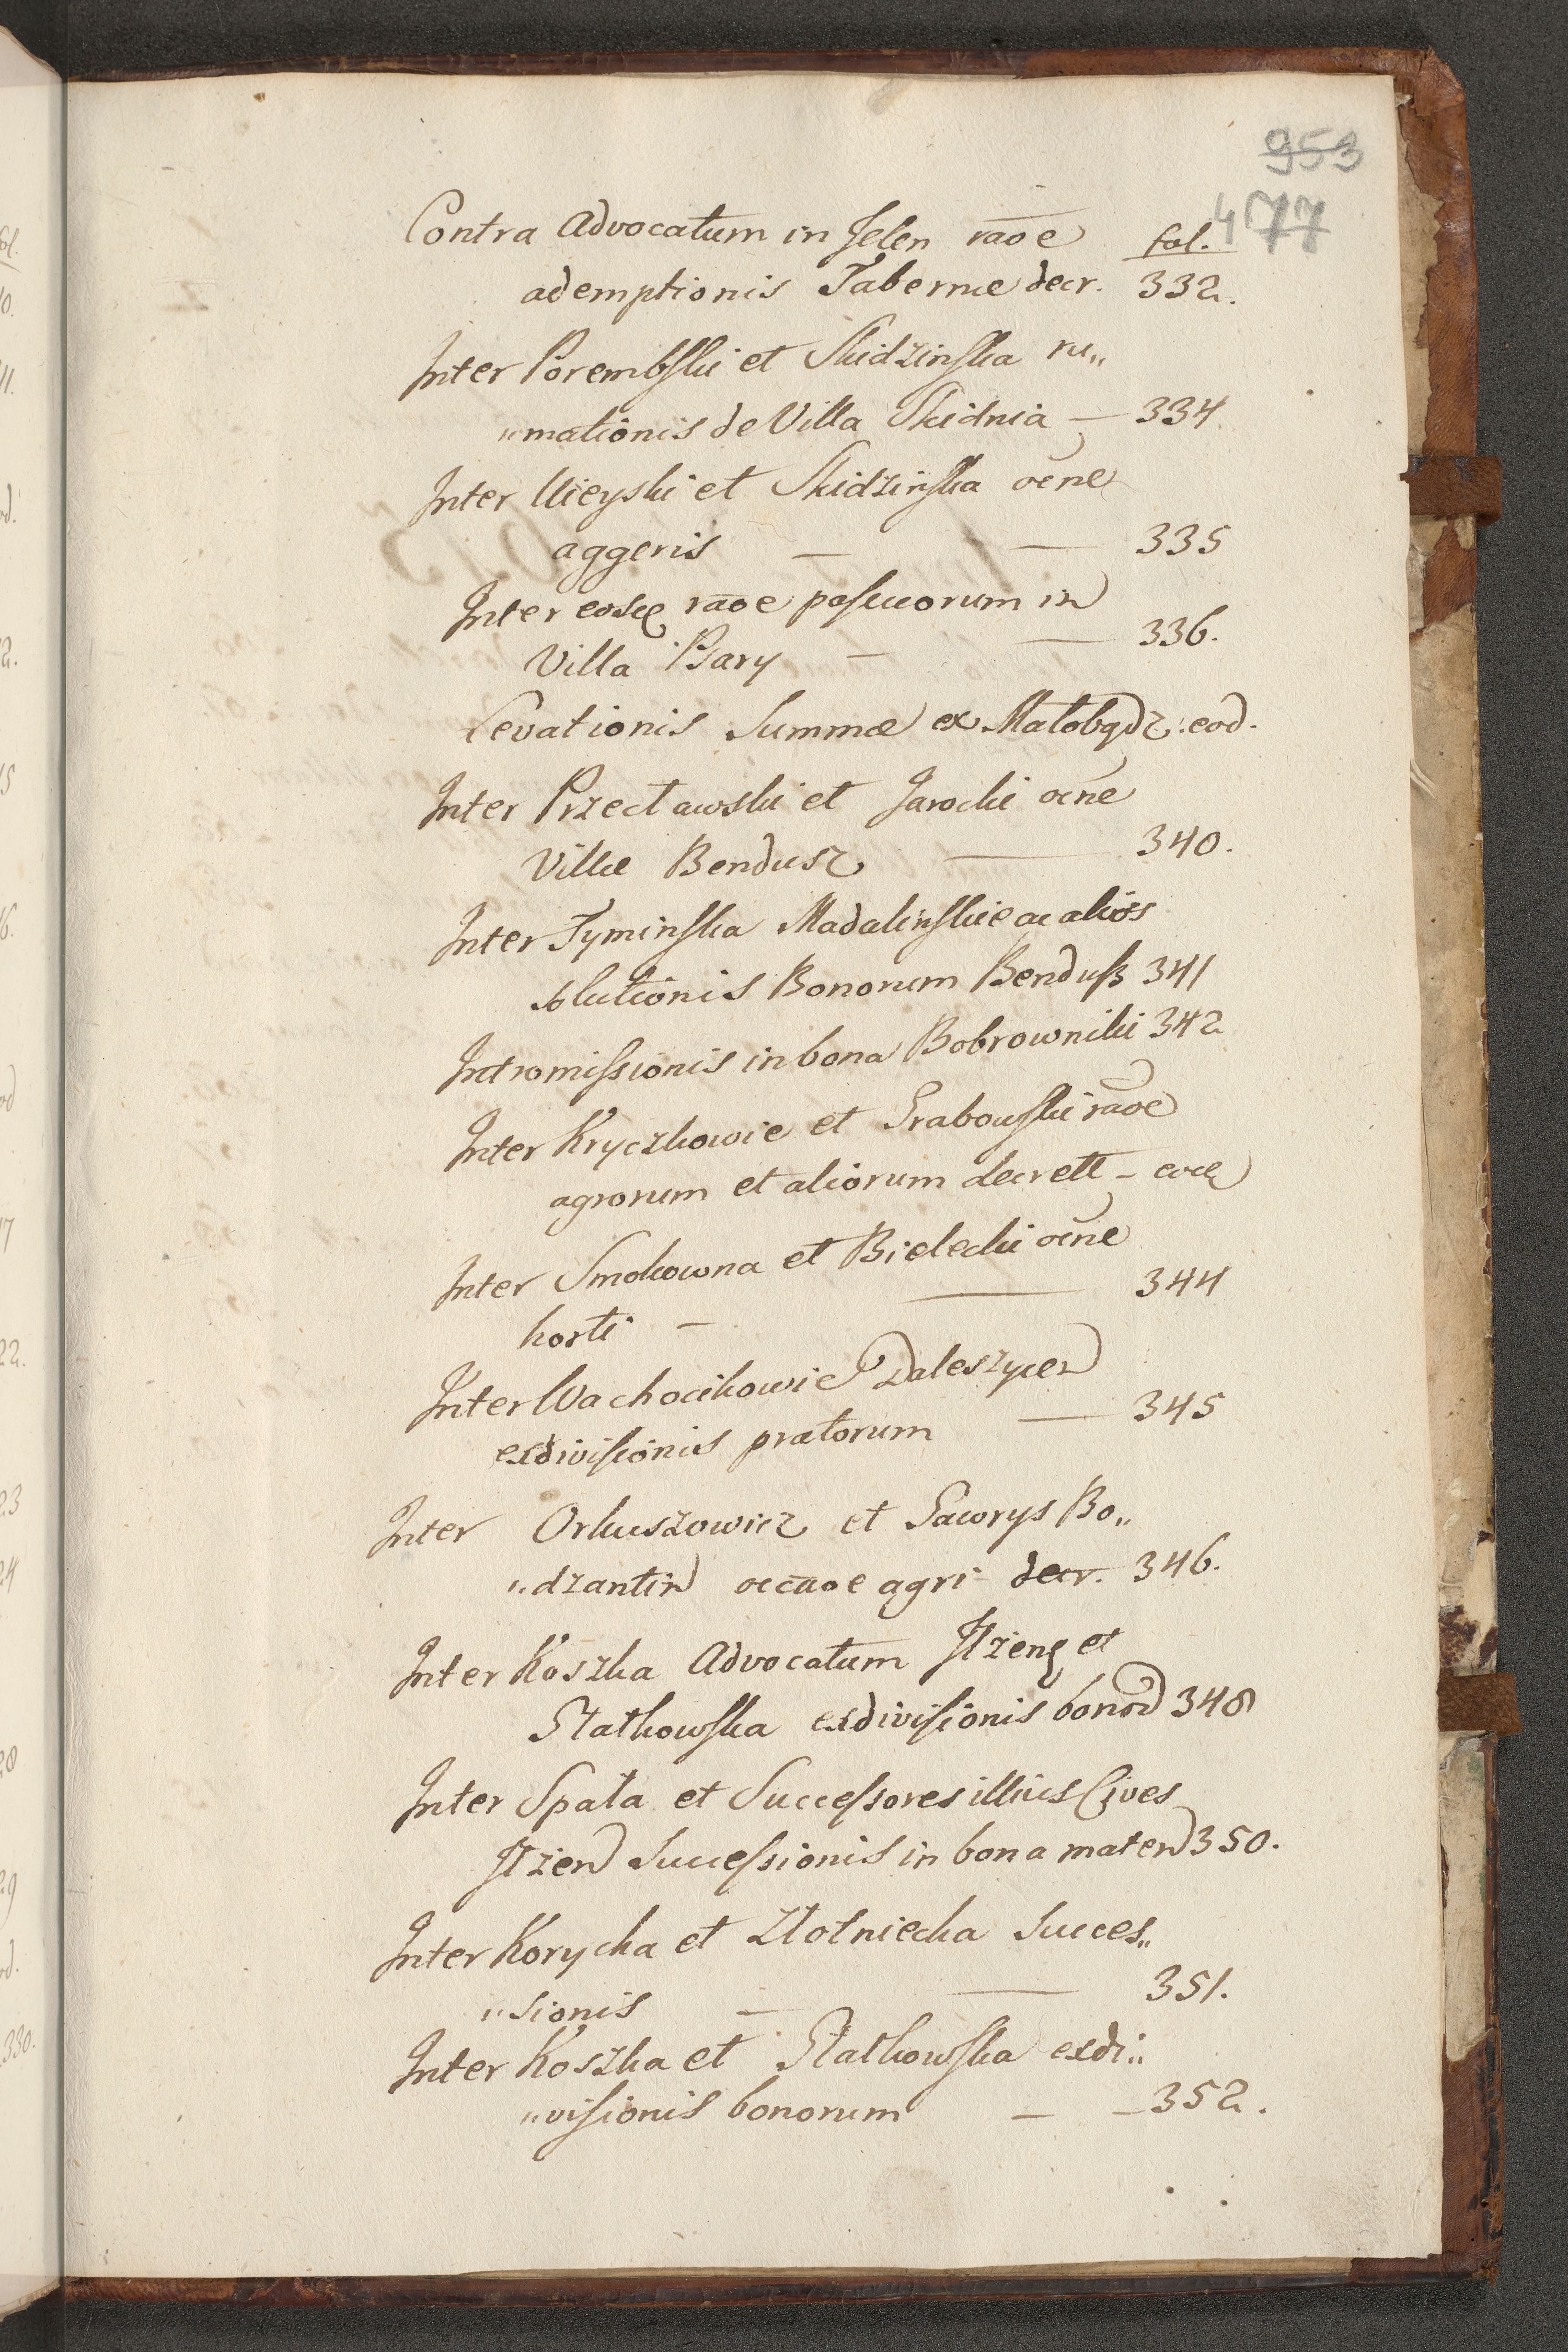 953
477
Contra Advocatum in Jelen rãoe fol.
ademptionis Tabernæ decr. 332.
Inter Porembski et Skidzinska ru„
„mationis de Villa Skidnia — 334
Inter Uieyski et Skidzinska ocne
aggeris — — 335
Inter eosq rãoe pascuorum in
Villa Psary — — 336.
Levationis Summæ ex Małobądz: eod.
Inter Przecławski et Jarocki ocne
Villæ Bendusz — 340.
Inter Tyminska Madalinskie ac alios
solutionis Bonorum Bendusz 341
Intromissionis in bona Bobrowniki 342
Inter Kryczkowie et Grabowski rãoe
agrorum et aliorum decrett – eod
Inter Smokowna et Bielecki ocne
horti — — 344
Inter Wachocikowie Daleszycen
exdivisionis pratorum — 345
Inter Orkuszowicz et Gawrys Bo„
„dzantin occãoe agri decr. 346.
Inter Koszka Advocatum Ilzenę et
Statkowska exdivisionis bonor 348
Inter Spała et Successores illius Cives
Ilzen Successionis in bona matern 350.
Inter Korycka et Złotniecka Succes„
„sionis — — 351.
Inter Koszka et Statkowska exdi„
„visionis bonorum — – 352.